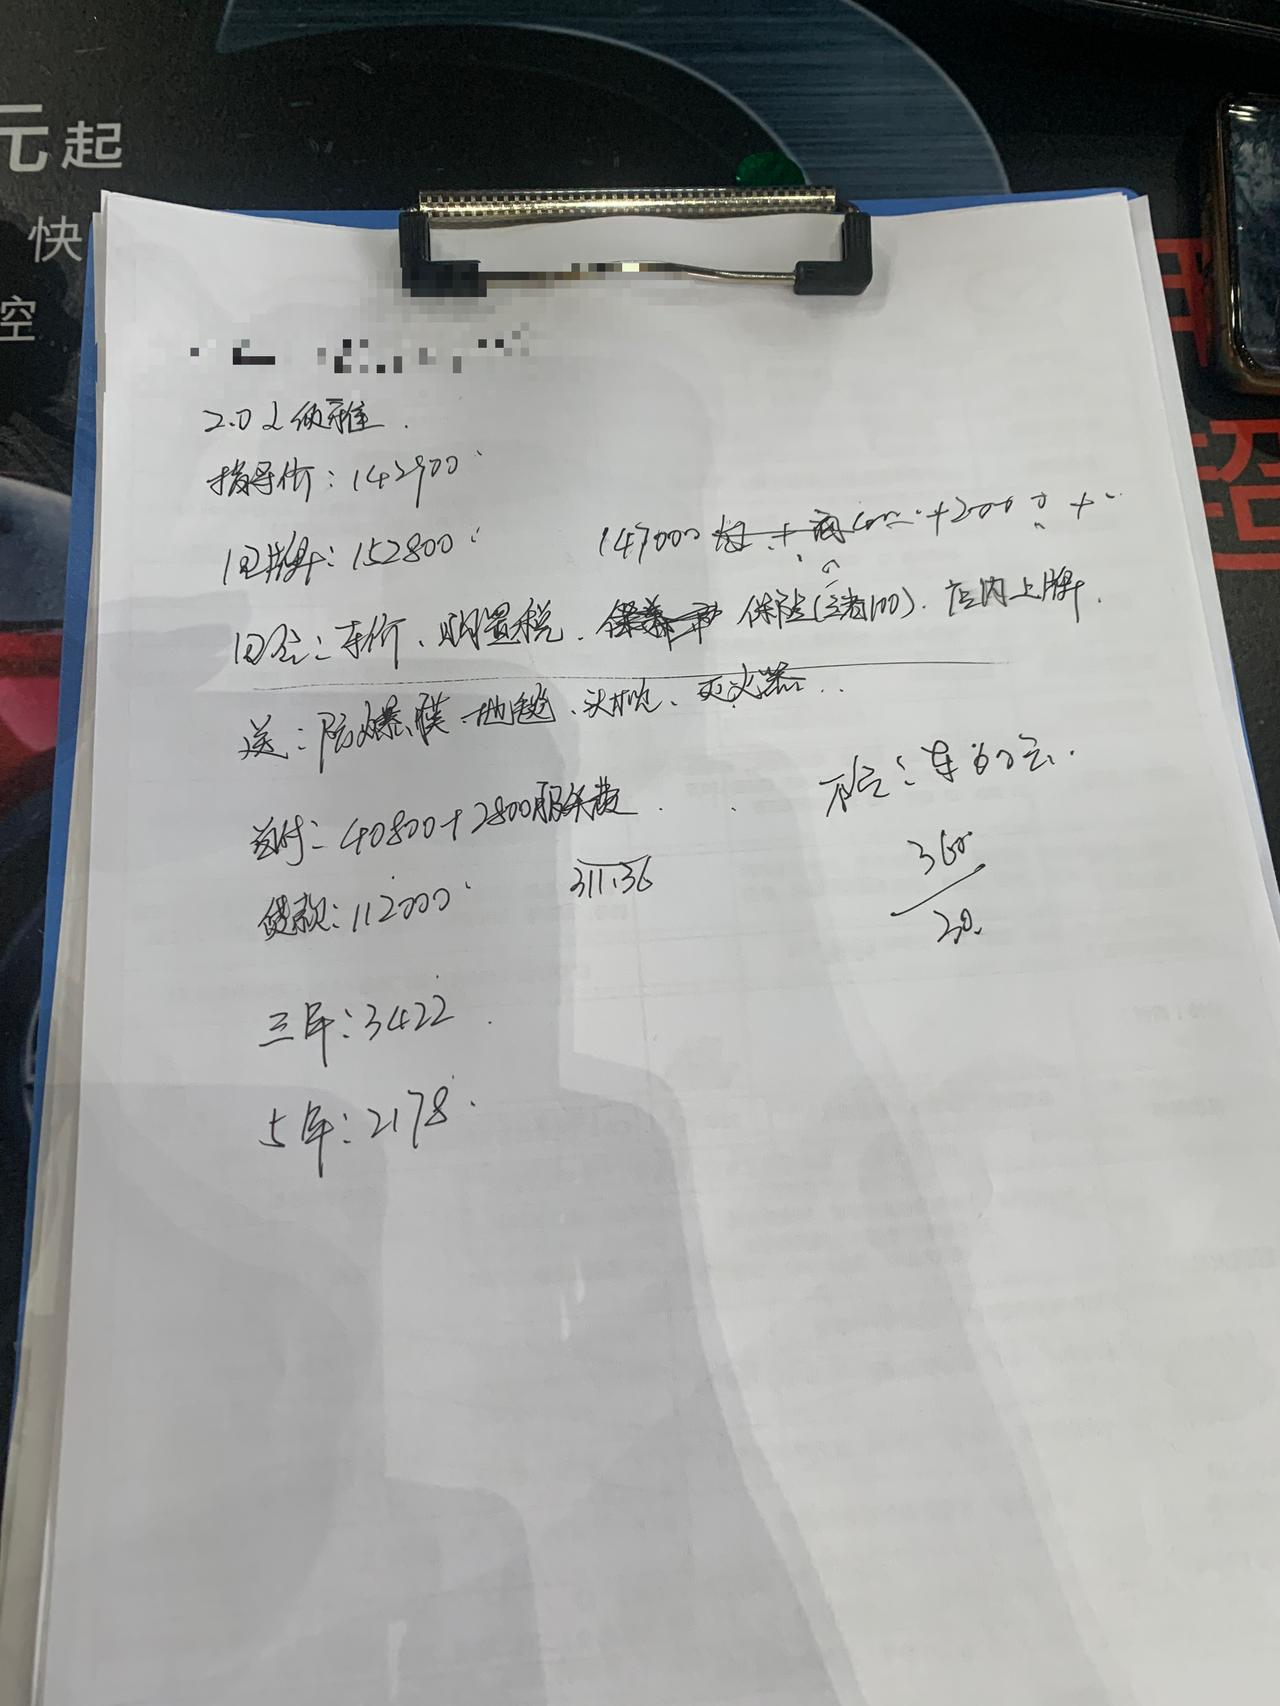 元起
快
控
2.0L 领雅.
指导价：142900
包牌：152800
147000 +2000 +
包含：车价、购置税、保险(三者100)、店内上牌.
送：防爆膜、地毯、头枕、灭火器..
不含：车船
首付：40800+2800服务费.
360
20.
311.36
贷款：112000
三年：3422.
5年：2178.
超